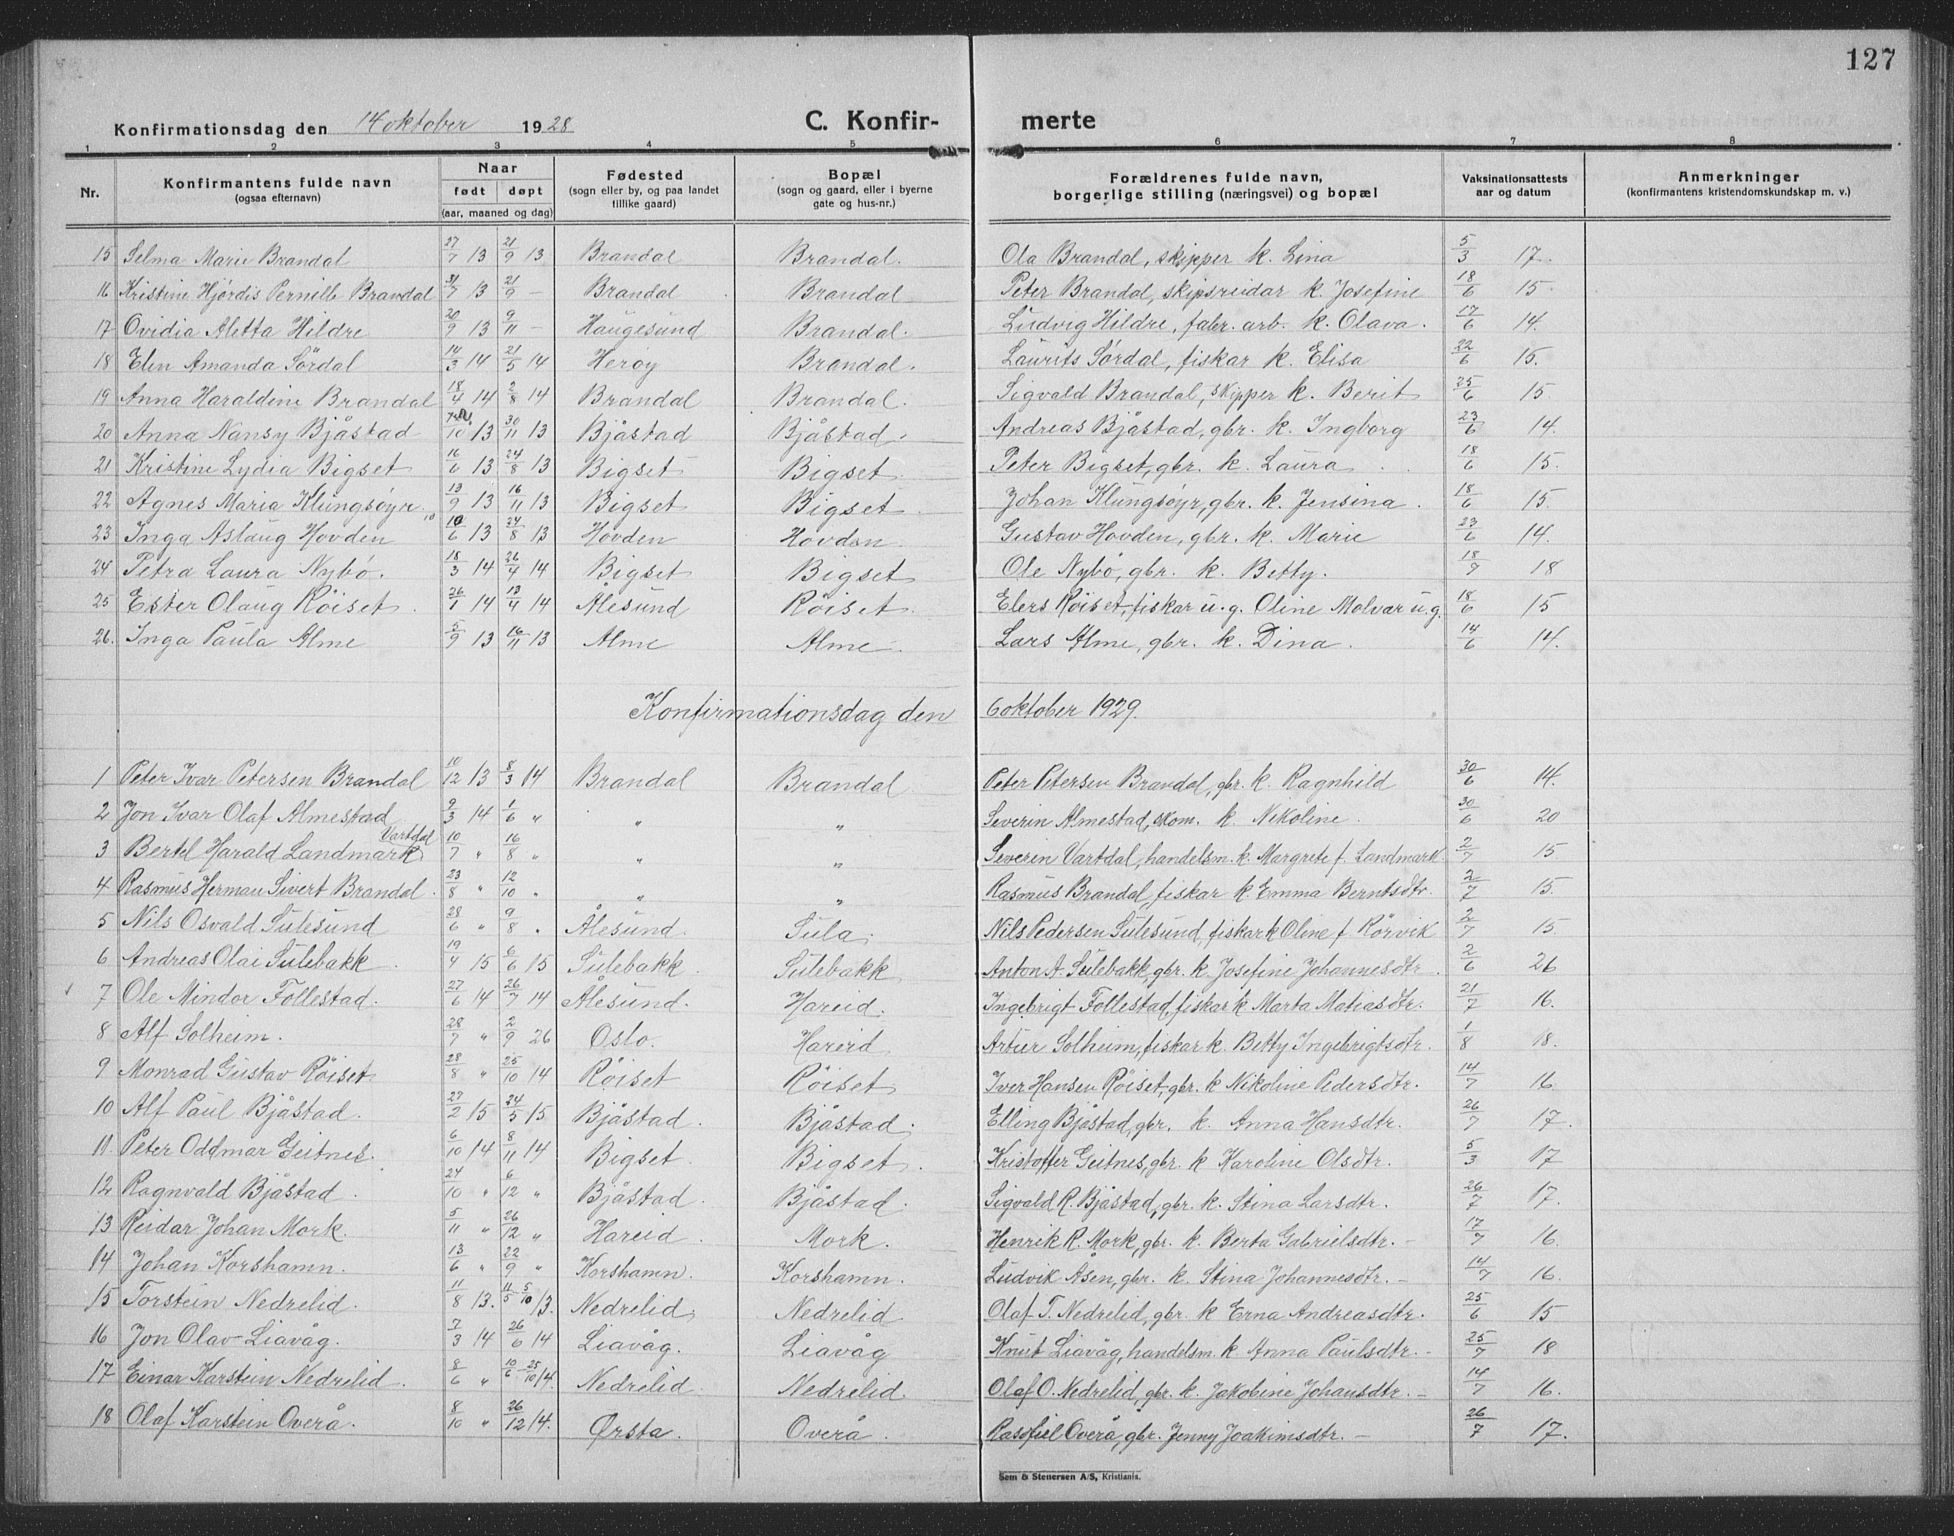 127
Konfirmationsdag den 14 oktober 1928 C. Konfir- merte
1 2 3 4 5 6 7 8
Nr. Konfirmantens fulde navn (ogsaa efternavn) Naar født døpt (aar, maaned og dag) Fødested (sogn eller by, og paa landet tillike gaard) Bopæl (sogn og gaard, eller i byerne gate og hus-nr.) Forældrenes fulde navn, borgerlige stilling (næringsvei) og bopæl Vaksinationsattests aar og datum Anmerkninger (konfirmantens kristendomskundskap m. v.)
15 Selma Marie Brandal 27/7 13 21/9 13 Brandal Brandal. Ola Brandal, skipper k. Lina 5/3 17.
16 Kristine Hjørdis Pernille Brandal 31/7 13 21/9 – Brandal Brandal Peter Brandal, skipsreidar k. Josefine 18/6 15.
17 Ovidia Aletta Hildre 20/9 13 9/11 – Haugesund Brandal. Ludvig Hildre, fabr. arb. k. Olava. 17/6 14.
18 Elen Amanda Sørdal 14/3 14 21/5 14 Herøy Brandal. Laurits Sørdal, fiskar k. Elisa 22/6 15.
19 Anna Haraldine Brandal 18/4 14 2/8 14 Brandal Brandal. Sigvald Brandal, skipper k. Berit 25/6 15.
20 Anna Nansy Bjåstad /10 13 30/11 13 Bjåstad Bjåstad. Andreas Bjåstad, gbr. k. Ingborg 23/6 14.
21 Kristine Lydia Bigset 16/6 13 24/8 13 Bigset Bigset Peter Bigset, gbr. k. Laura 18/6 15.
22 Agnes Maria Klungsøyr. 13/9 13 16/11 13 Bigset Bigset Johan Klungsøyr, gbr. k. Jensina 18/6 15.
23 Inga Aslaug Hovden 10/6 13 24/8 13 Hovden Hovden Gustav Hovden, gbr. k. Marie 23/6 14.
24 Petra Laura Nybø. 18/3 14 26/4 14 Bigset Bigset Ole Nybø, gbr. k. Betty. 18/7 18
25 Ester Olaug Røiset. 26/1 14 13/4 14 Ålesund Røiset. Elers Røiset, fiskar u. g. Oline Molvær u. g. 18/6 15
26. Inga Paula Alme 5/9 13 16/11 13 Alme Alme. Lars Alme, gbr. k. Dina. 14/6 14.
Konfirmationsdag den 6 oktober 1929.
1 Peter Ivar Petersen Brandal 10/12 13 8/3 14 Brandal Brandal Peter Petersen Brandal, gbr. k. Ragnhild 30/6 14.
2 Jon Ivar Olaf Almestad 9/3 14 1/6 " " " Severin Almestad, skom. k. Nekoline. 30/6 20
3 Bertel Harald Landmark Vartdal 10/7 " 16/8 " " " Severin Vartdal, handelsm. k. Margrete f. Landmark. 2/7 15.
4 Rasmus Herman Sivert Brandal. 23/8 " 12/10 " " " Rasmus Brandal, fiskar k Emma Berntsdtr. 2/7 15.
5 Nils Osvald Sulesund 28/6 " 9/8 " Ålesund. Sula. Nils Pedersen Sulesund, fiskar k Oline f. Rørvik 2/7 15.
6 Andreas Olai Sulebakk. 19/4 15 6/6 15 Sulebakk. Sulebakk Anton A. Sulebakk, gbr. k Josefine Johannesdtr. 2/6 26
7 Ole Mindor Follestad. 27/6 14 26/7 14 Ålesund. Hareid. Ingebrigt Follestad, fiskar k Marta Matiasdtr. 21/7 16.
8 Alf Solheim. 28/7 " 2/9 26 Oslo. Hareid Artur Solheim, fiskar k. Betty Ingebrigtsdtr. 1/8 18.
9 Monrad Gustav Røiset. 28/8 " 25/10 14 Røiset Røiset Iver Hansen Røiset, gbr. k Nikoline Pedersdtr. 14/7 16
10 Alf Paul Bjåstad. 27/2 15 24/5 15 Bjåstad. Bjåstad. Elling Bjåstad, gbr. k. Anna Hansdtr. 26/7 17.
11 Peter Oddmar Geitnes. 6/10 14 8/11 14 Bigset. Bigset. Kristoffer Geitnes, gbr. k Karoline Olsdtr. 5/3 17
12 Ragnvald Bjåstad. 24/10 " 6/12 " Bjåstad. Bjåstad. Sigvald R. Bjåstad, gbr. k. Stina Larsdtr. 26/7 17.
13 Reidar Johan Mork. 5/11 " 26/12 " Hareid. Mork. Henrik R. Mork, gbr. k. Berta Gabrielsdtr. – 17/7 16.
14 Johan Korshamn. 13/6 " 22/9 " Korshamn. Korshamn. Ludvik Åsen, gbr. k. Stina Johannesdtr. – 14/7 16.
15 Torstein Nedrelid. 11/8 13. 11/5 5/10 13. Nedrelid. Nedrelid Olaf T. Nedrelid, gbr. k Erna Andreasdtr. 25/6 15
16 Jon Olav Liavåg. 7/3 14 26/6 14 Liavåg. Liavåg Knut Liavåg, handelsm. k. Anna Paulsdtr. – 25/7 18
17 Einar Karstein Nedrelid. 8/6 " 10/6 25/10 14. Nedrelid. Nedrelid. Olaf O. Nedrelid, gbr. k. Jakobine Johansdtr. – 14/7 16.
18 Olaf Karstein Overå. 8/10 " 26/12 14. Ørsta. Overå. Rasofiel Overå, gbr. Jenny Joakimsdtr. – 26/7 17.
Sem & Stenersen A/S, Kristiania.